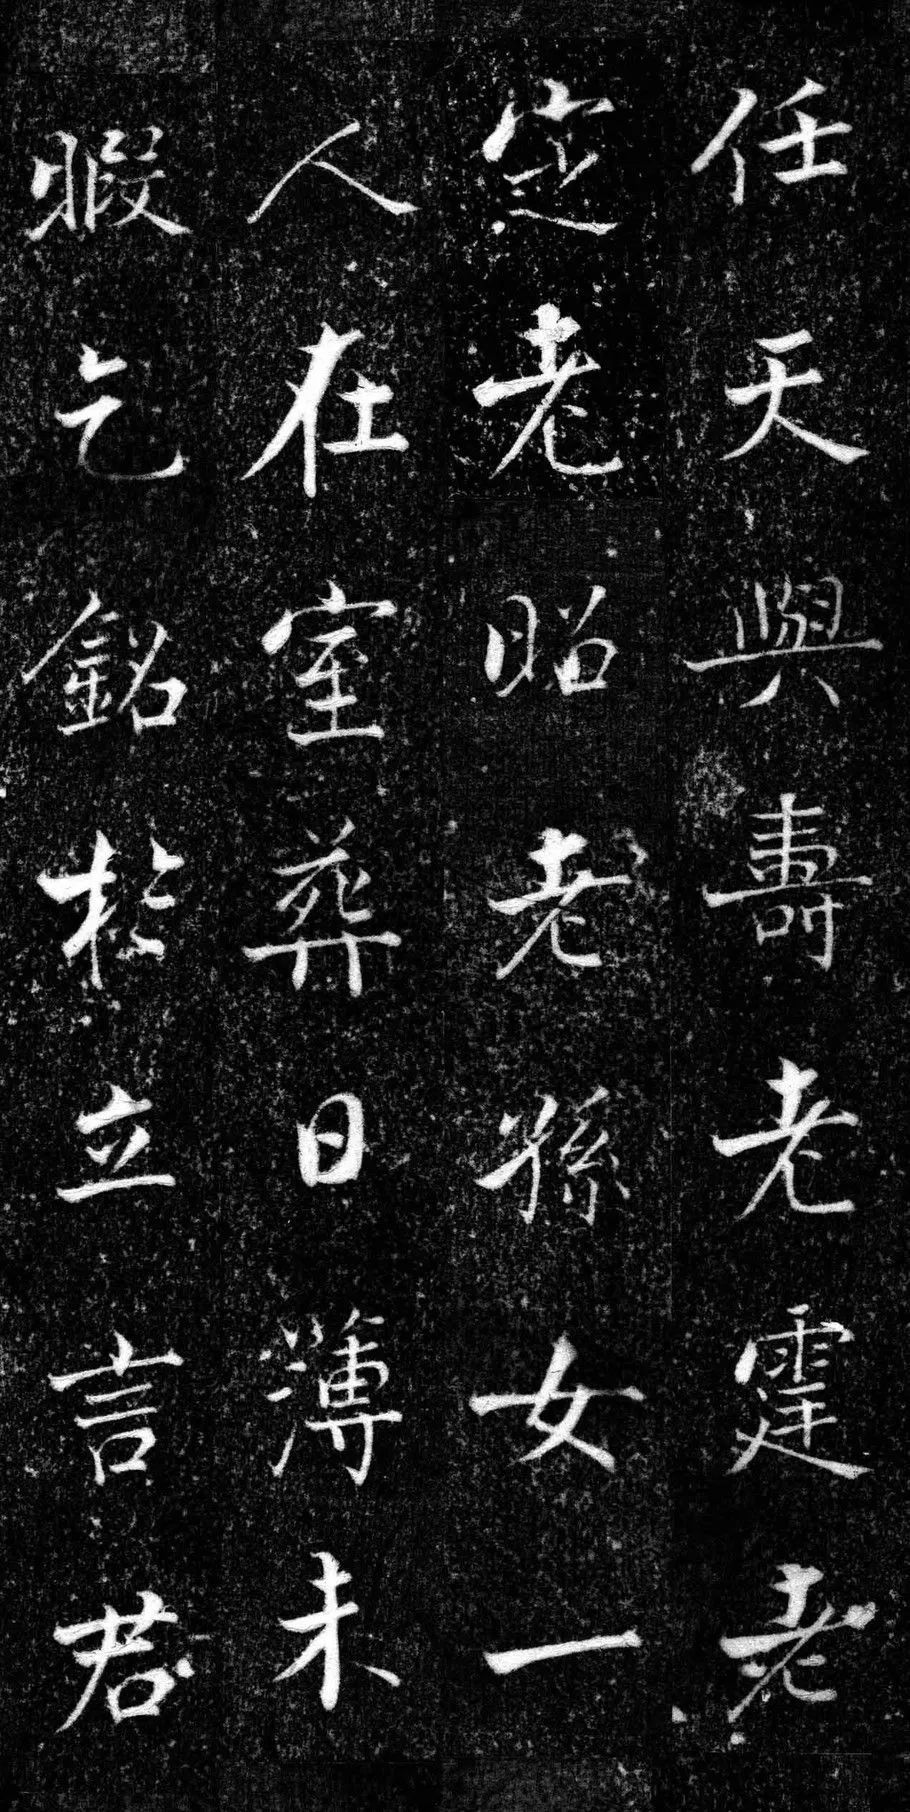 任天與壽老霆老
定老昭老孫女一
人在室葬日薄未
暇乞銘於立言君